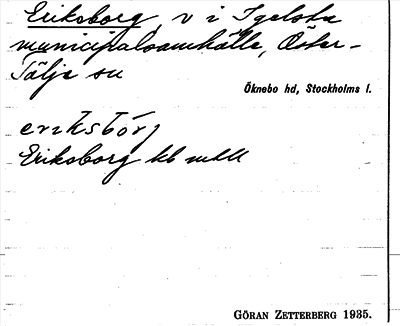 Eriksborg, v i Igelsta
municipalsamhälle, Öster-
Tälje sn
Öknebo hd, Stockholms l.
Eriksborg kb
GÖRAN ZETTERBERG 1935.